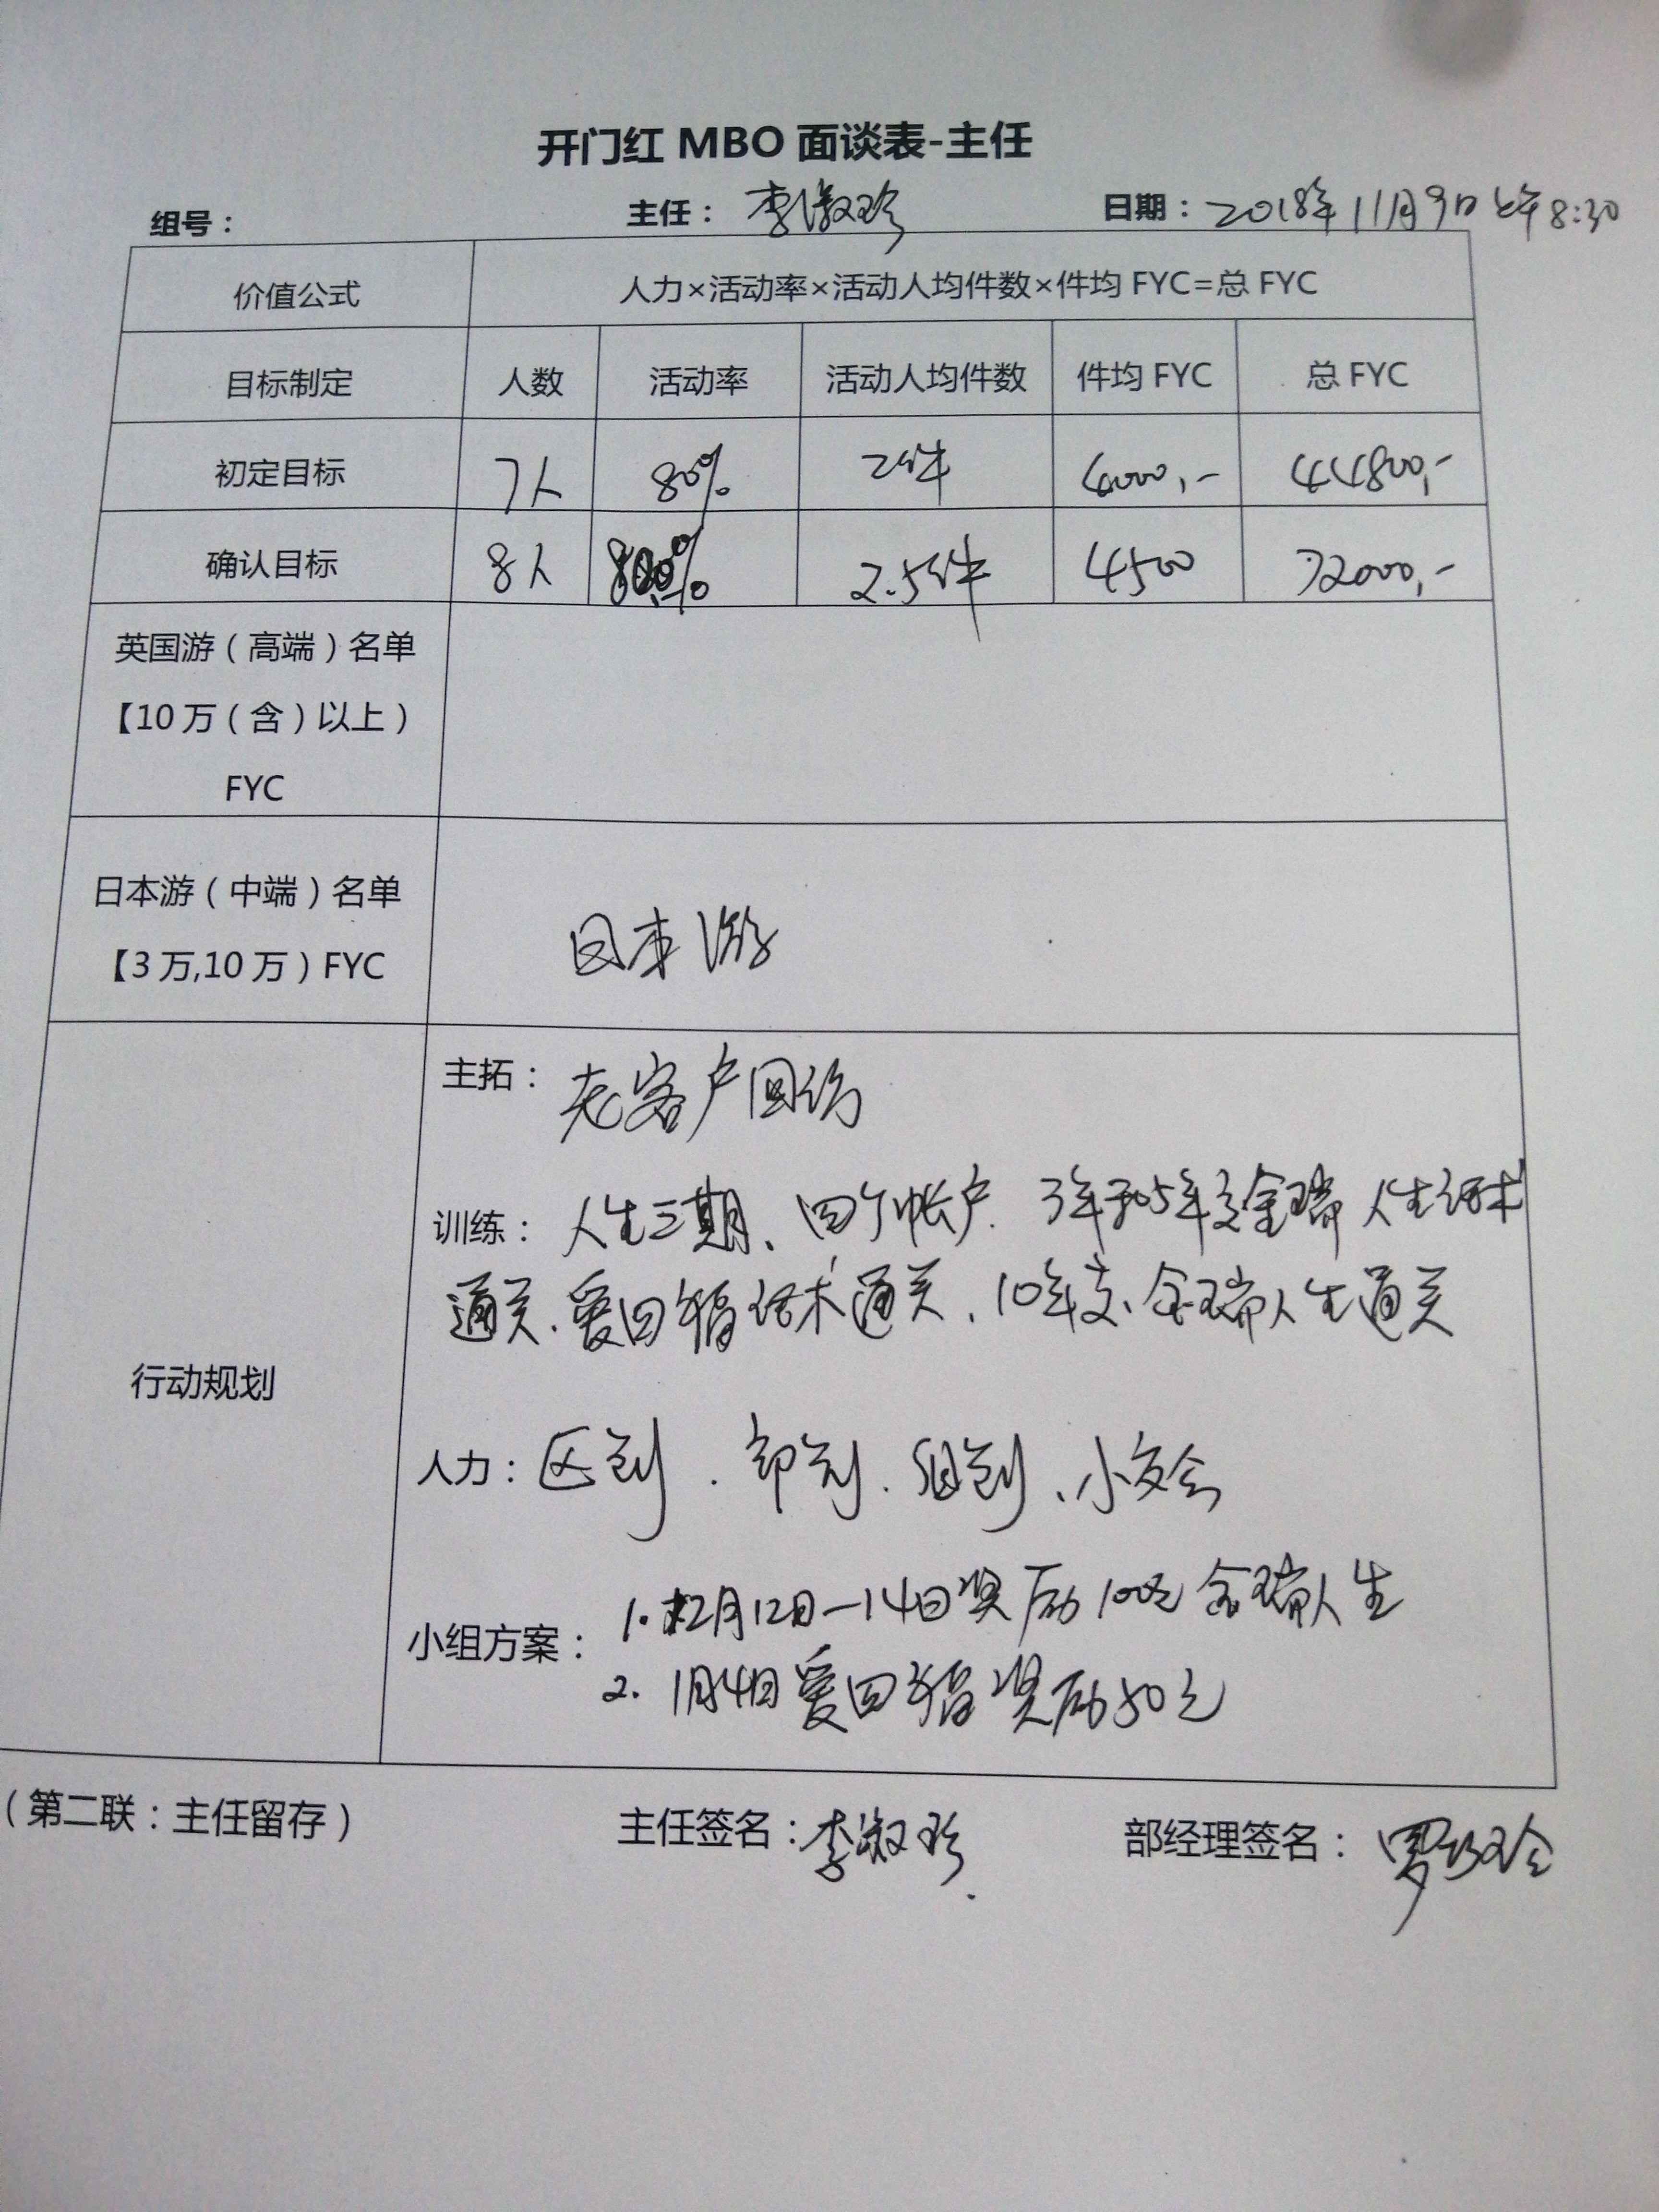 开门红 MBO 面谈表-主任
组号： 主任：李淑珍 日期：2018年11月9日上午8:30
价值公式 人力×活动率×活动人均件数×件均 FYC=总 FYC
目标制定 人数 活动率 活动人均件数 件均 FYC 总 FYC
初定目标 7人 80% 2件 4000,- 44800,-
确认目标 8人 2.5件 4500 72000,-
英国游（高端）名单
【10 万（含）以上）
FYC
日本游（中端）名单
【3 万,10 万）FYC
日本游
行动规划
主拓：老客户回访
训练：人生三期、四个帐户、3年和5年交金瑞人生话术
通关、爱回福话术通关、10年交、金瑞人生通关
人力：区创、部创、组创、小交会
小组方案：1. 12月12日—14日奖励100元金瑞人生
2. 1月4日爱回福奖励50元
（第二联：主任留存） 主任签名：李淑珍 部经理签名：罗